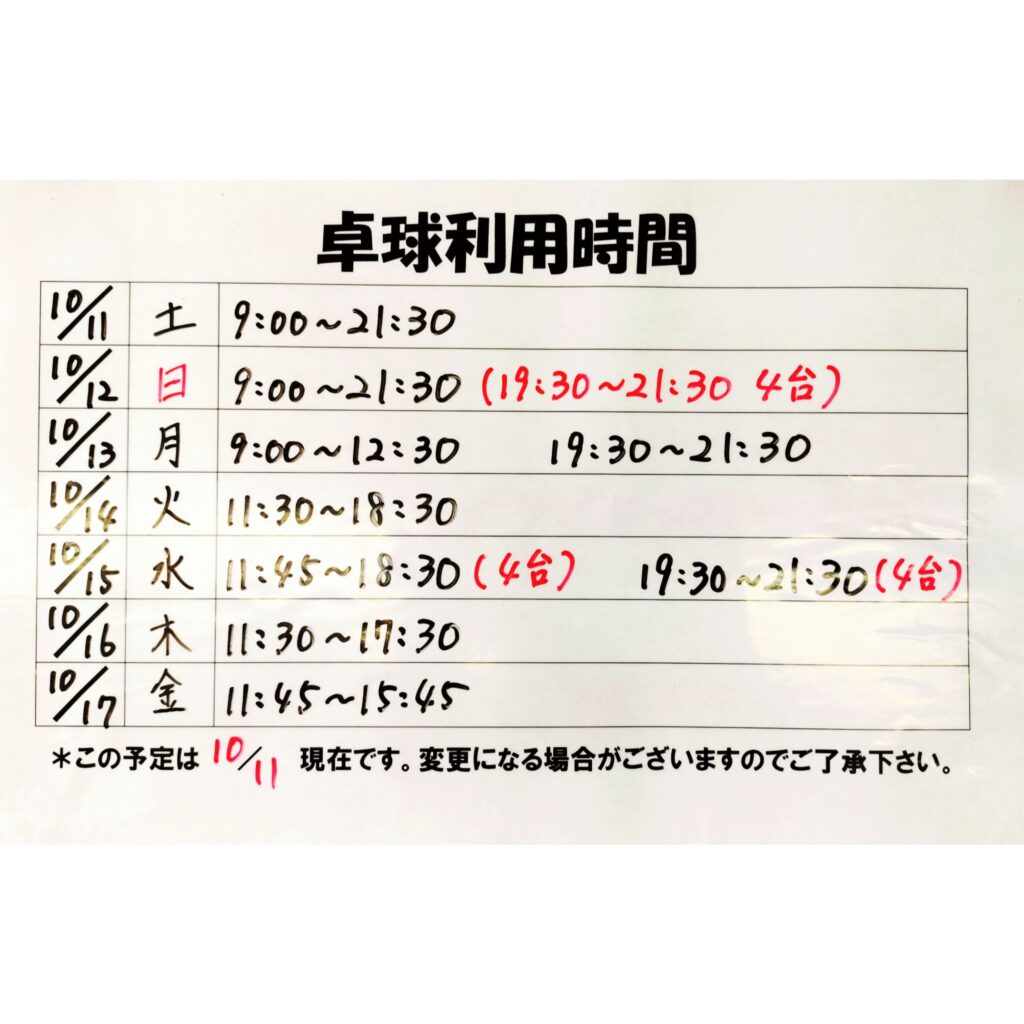 卓球利用時間
10/11 土 9:00~21:30
10/12 日 9:00~21:30 (19:30~21:30 4台)
10/13 月 9:00~12:30 19:30~21:30
10/14 火 11:30~18:30
10/15 水 11:45~18:30(4台) 19:30~21:30(4台)
10/16 木 11:30~17:30
10/17 金 11:45~15:45
*この予定は 10/11 現在です。変更になる場合がございますのでご了承下さい。